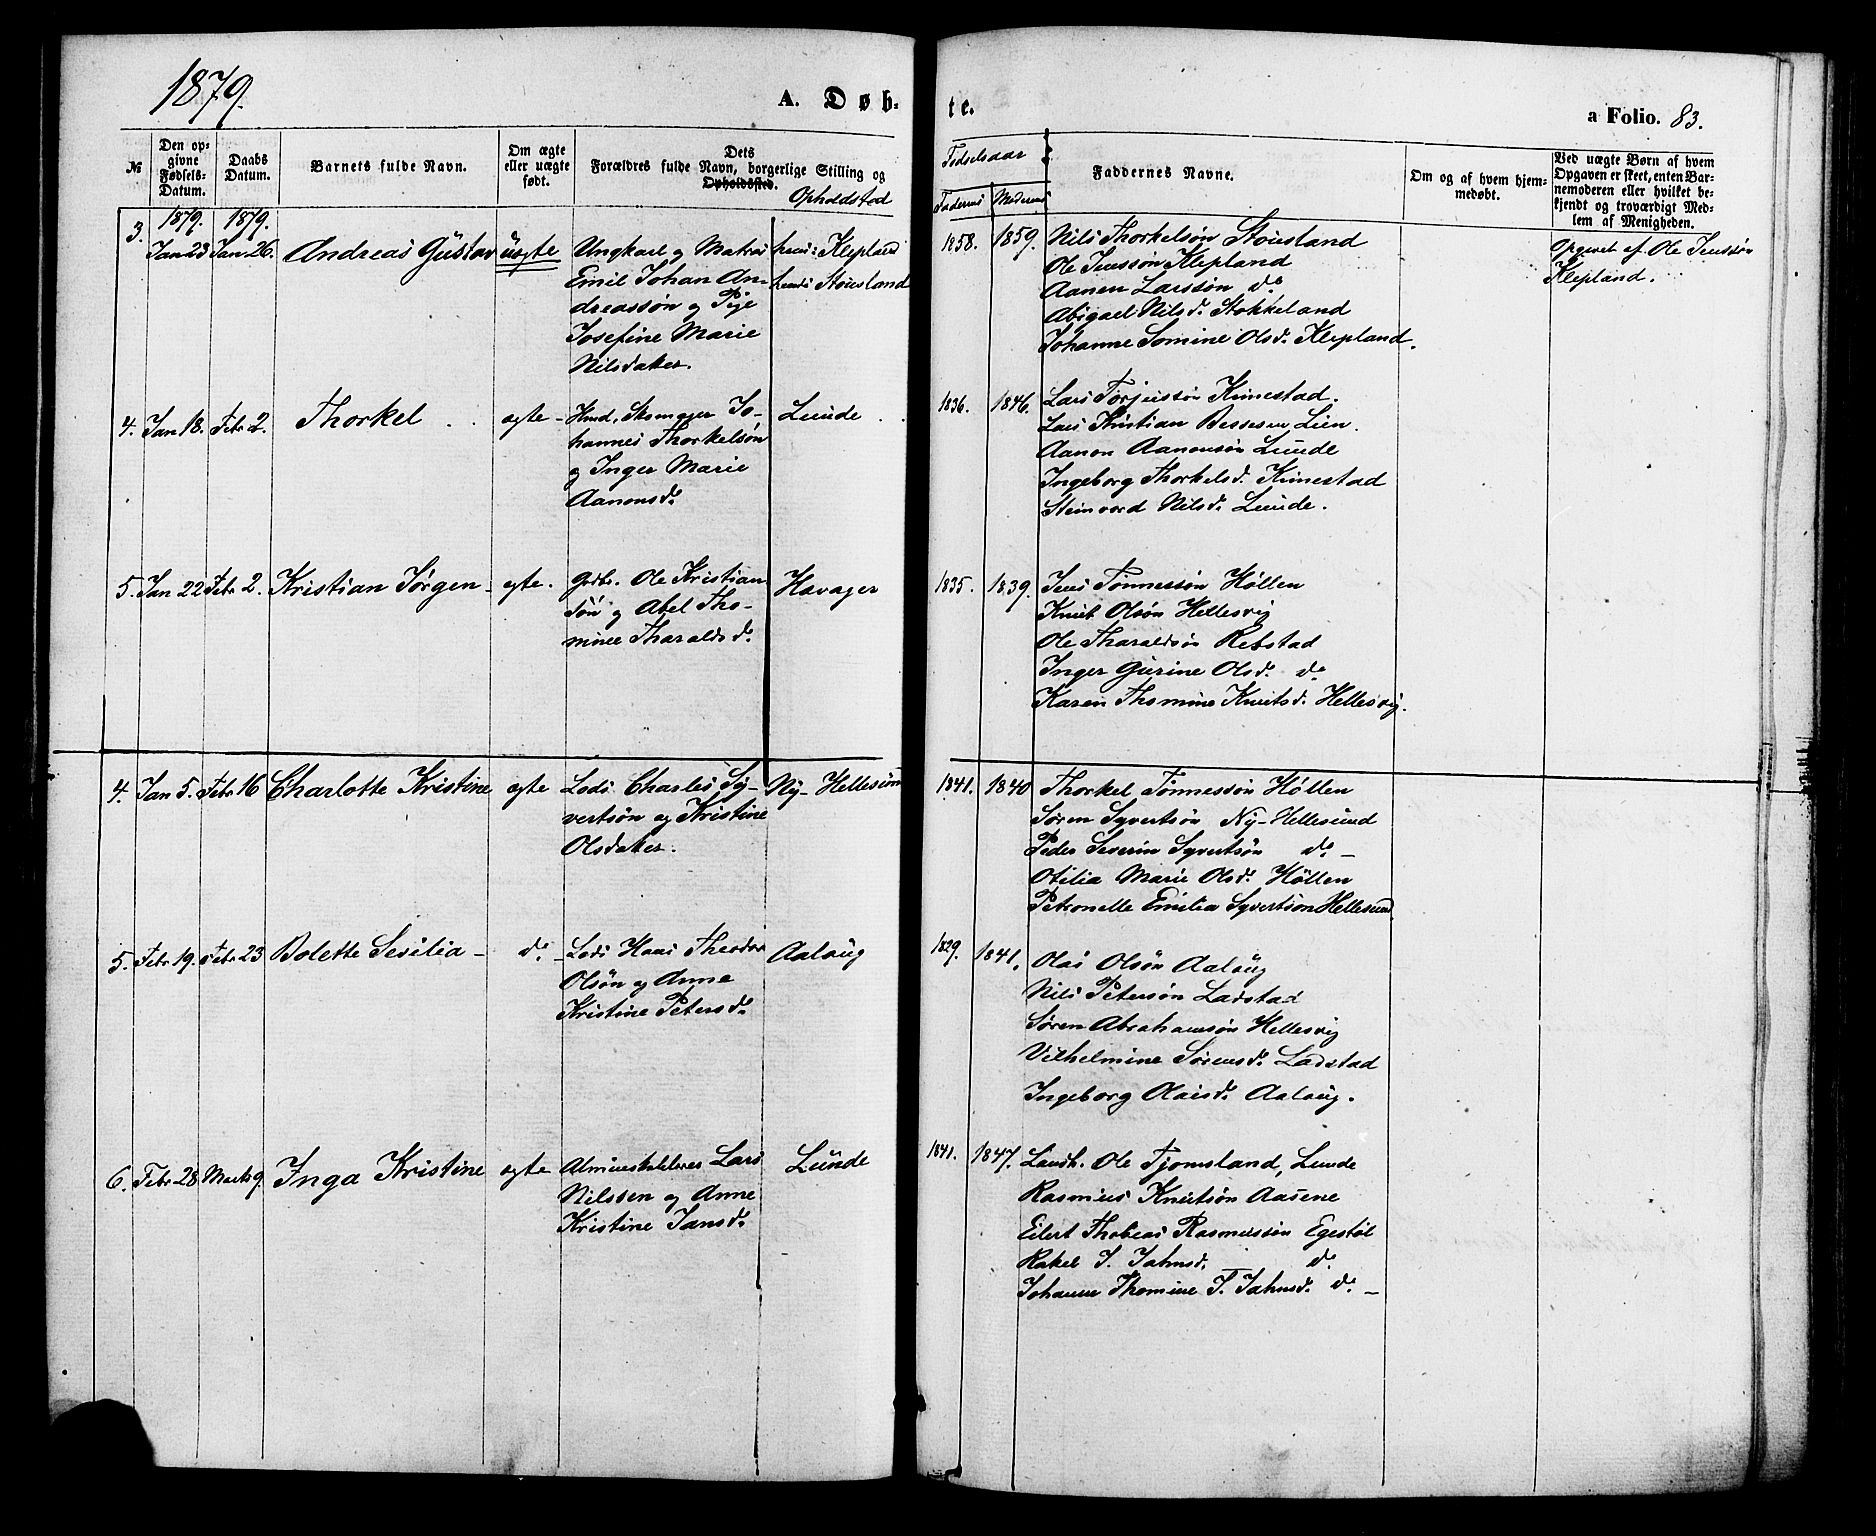 1879.
A. Døb-
te.
a Folio. 83.
№
Den opgivne Fødsels-Datum.
Daabs Datum.
Barnets fulde Navn.
Om ægte eller uægte født.
Forældres fulde Dets Navn, borgerlige Stilling og Opholdssted.
Opholdsted
Fødselsaar
Faderens
Moderens
Faddernes Navne.
Om og af hvem hjemmedøbt.
Ved uægte Børn af hvem Opgaven er skeet, enten Barnemoderen eller hvilket bekjendt og troværdigt Medlem af Menigheden.
1879. 1879.
3. Jan 23 Jan 26. Andreas Gustav uægte
Ungkarl og Matros
Emil Johan An-
dreassøn og Pige
Josefine Marie
Nilsdatter.
hend: Klepland
hend: Stousland
1858. 1859.
Nils Thorkelsøn Stousland
Ole Jenssøn Klepland
Aanen Larssøn do
Abigael Nilsd. Stokkeland
Johanne Somine Olsd. Klepland.
Opgivet af Ole Jenssøn
Klepland.
4. Jan 18. Febr 2. Thorkel ægte -
Hmd, Skomager Jo-
hannes Thorkelsøn
og Inger Marie
Aanonsd.
Lunde
1836. 1846.
Lars Torjussøn Kimestad.
Lars Kristian Bessesen Lien.
Aanon Aanonsøn Lunde
Ingeborg Thorkelsd. Kimestad
Steinvord Nilsd. Lunde.
5. Jan 22 Febr 2. Kristian Jørgen - ægte.
Gdbr. Ole Kristian
søn og Abel Tho-
mine Tharaldsd.
Havager
1835. 1839.
Jens Tønnessøn Høllen
Knut Olsøn Hellesvig
Ole Tharaldsøn Rebstad
Inger Gurine Olsd. do
Karen Thomine Knutsd. Hellesvig.
4. Jan 5. Febr 16 Charlotte Kristine ægte
Lods Charles Sy-
vertsøn og Kristine
Olsdatter.
Ny-Hellesund
1841. 1840
Thorkel Tønnessøn Høllen
Søren Syvertsøn Ny-Hellesund
Peder Severin Syvertsøn do -
Otilia Marie Olsd. Høllen
Petronelle Emilia Syvertson Hellesund
5. Febr 19. Febr 23 Bolette Sesilia - do -
Lods Hans Theodor
Olsøn og Anne
Kristine Petersd.
Aaloug
1829. 1841.
Olai Olsøn Aaloug
Nils Petersøn Ladstad
Søren Abrahamsøn Hellesvig
Vilhelmine Sørensd. Ladstad
Ingeborg Olaisd. Aaloug.
6. Febr 28 Marts 9. Inga Kristine ægte
Almueskolelærer Lars
Nilssen og Anne
Kristine Jansd.
Lunde
1841. 1847.
Landh. Ole Tjomsland, Lunde
Rasmus Knutsøn Aasene
Eilert Thobias Rasmussøn Egestøl
Rakel T. Jahnsd. do
Johanne Thomine T. Jahnsd. do -